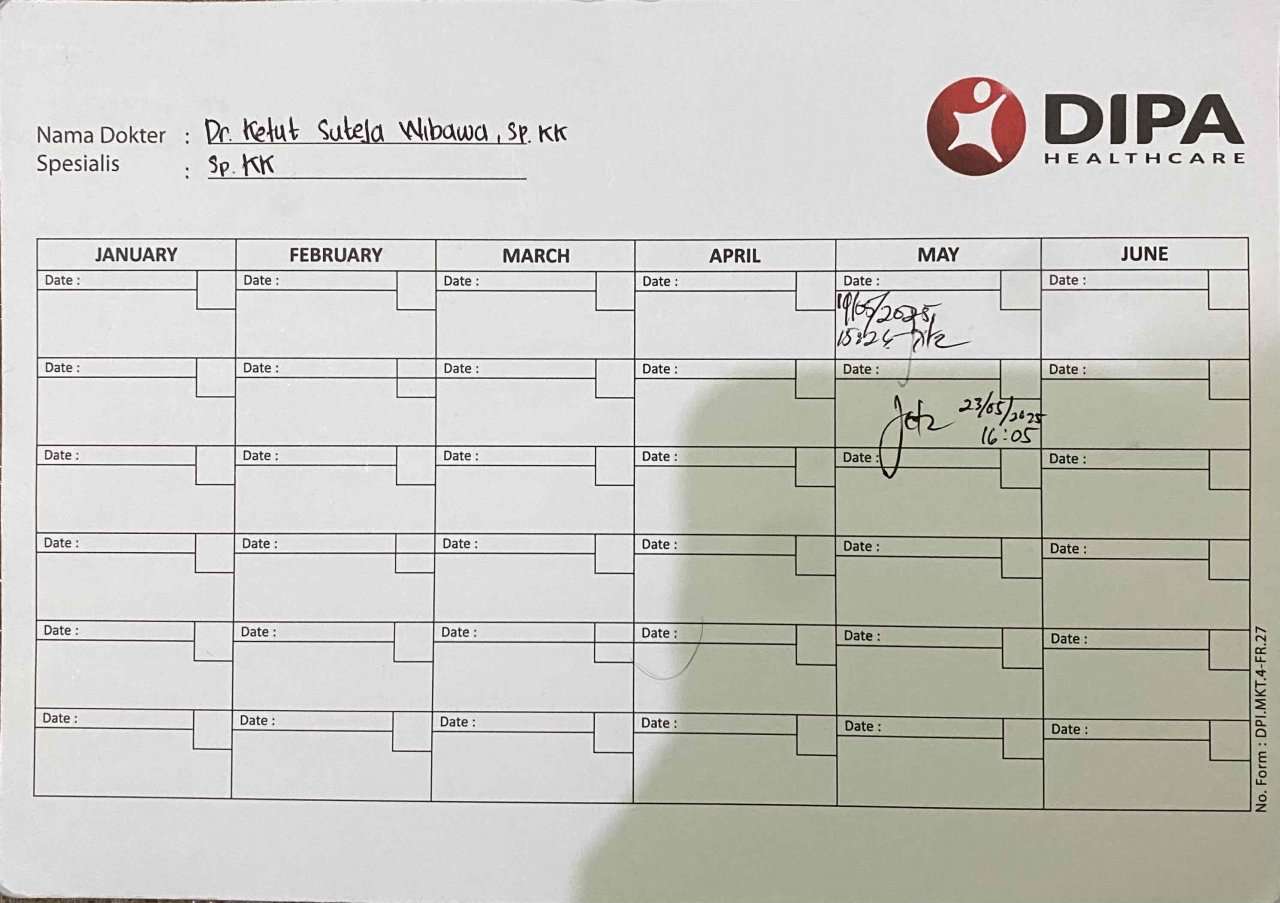 DIPA
HEALTHCARE
Nama Dokter : Dr. Ketut Suteja Wibawa, Sp. KK
Spesialis : Sp. KK
JANUARY FEBRUARY MARCH APRIL MAY JUNE
Date : Date : Date : Date : Date : Date :
19/05/2025
15:24
Date : Date : Date : Date : Date : Date :
23/05/2025
16:05
Date : Date : Date : Date : Date : Date :
Date : Date : Date : Date : Date : Date :
Date : Date : Date : Date : Date : Date :
Date : Date : Date : Date : Date : Date :
No. Form : DPI.MKT.4-FR.27